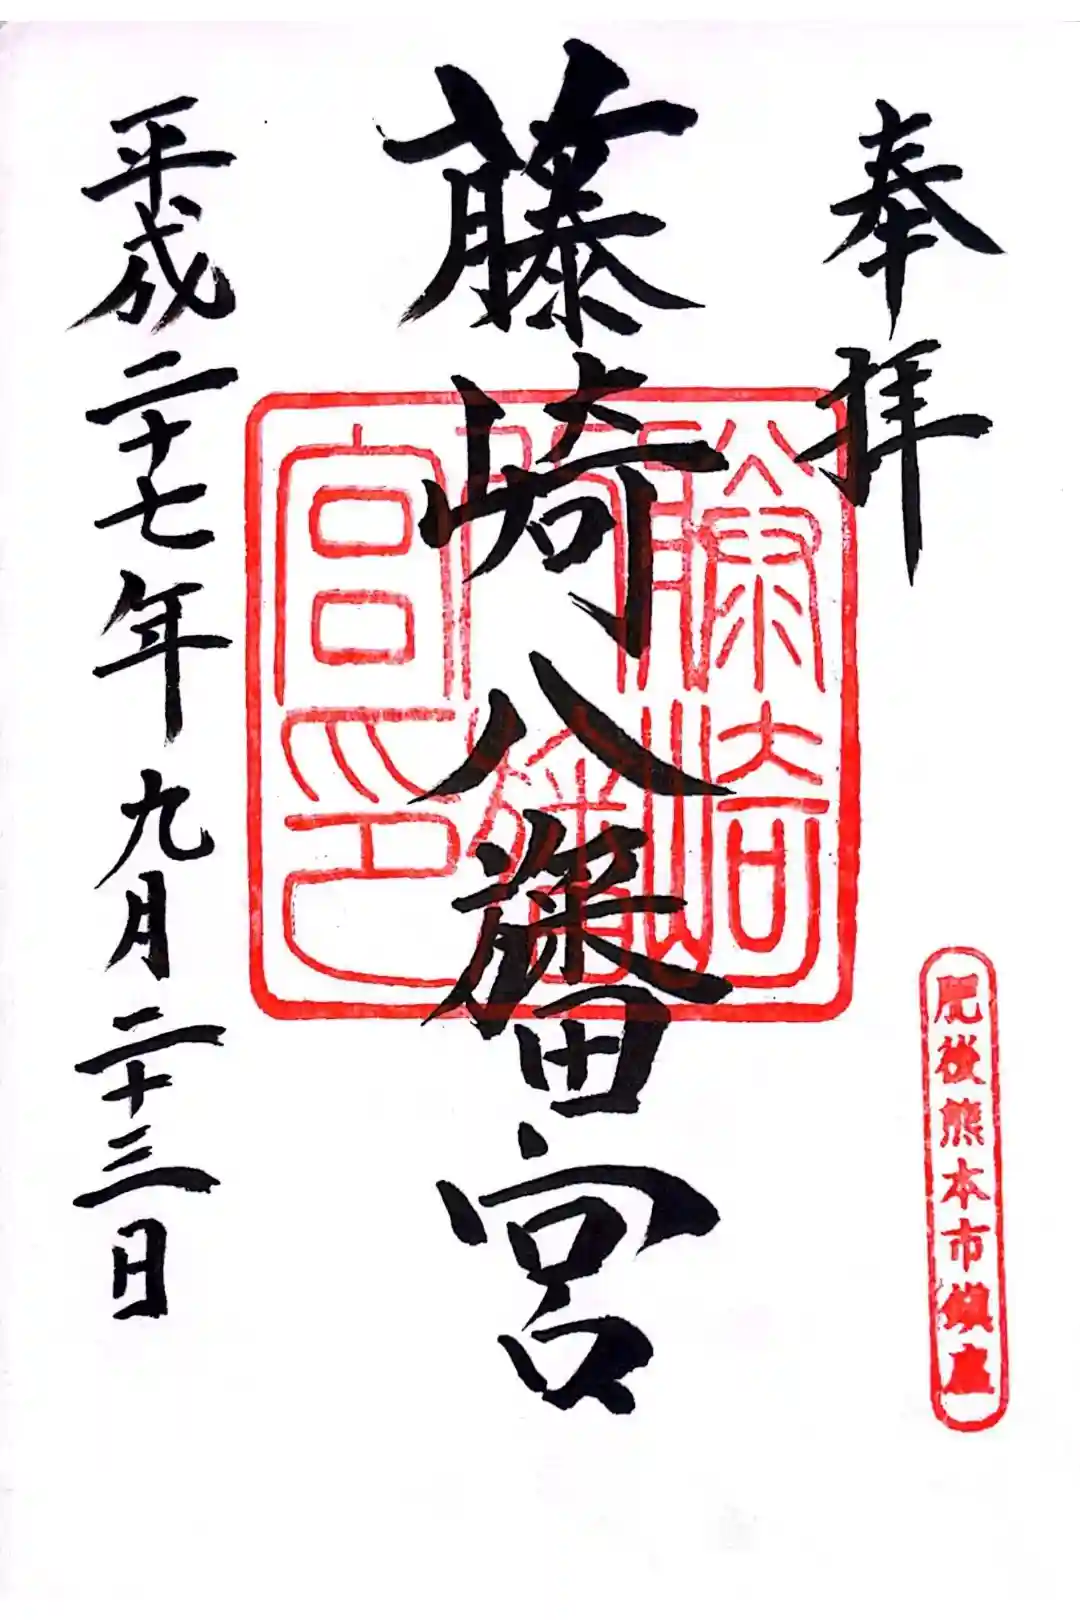 奉拝
肥後熊本市鎮座
藤崎八旛宮
藤崎八旛宮印
平成二十七年九月二十三日